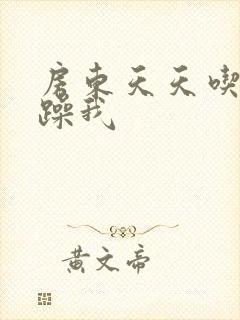 房东天天喫
躁我
黄文帝